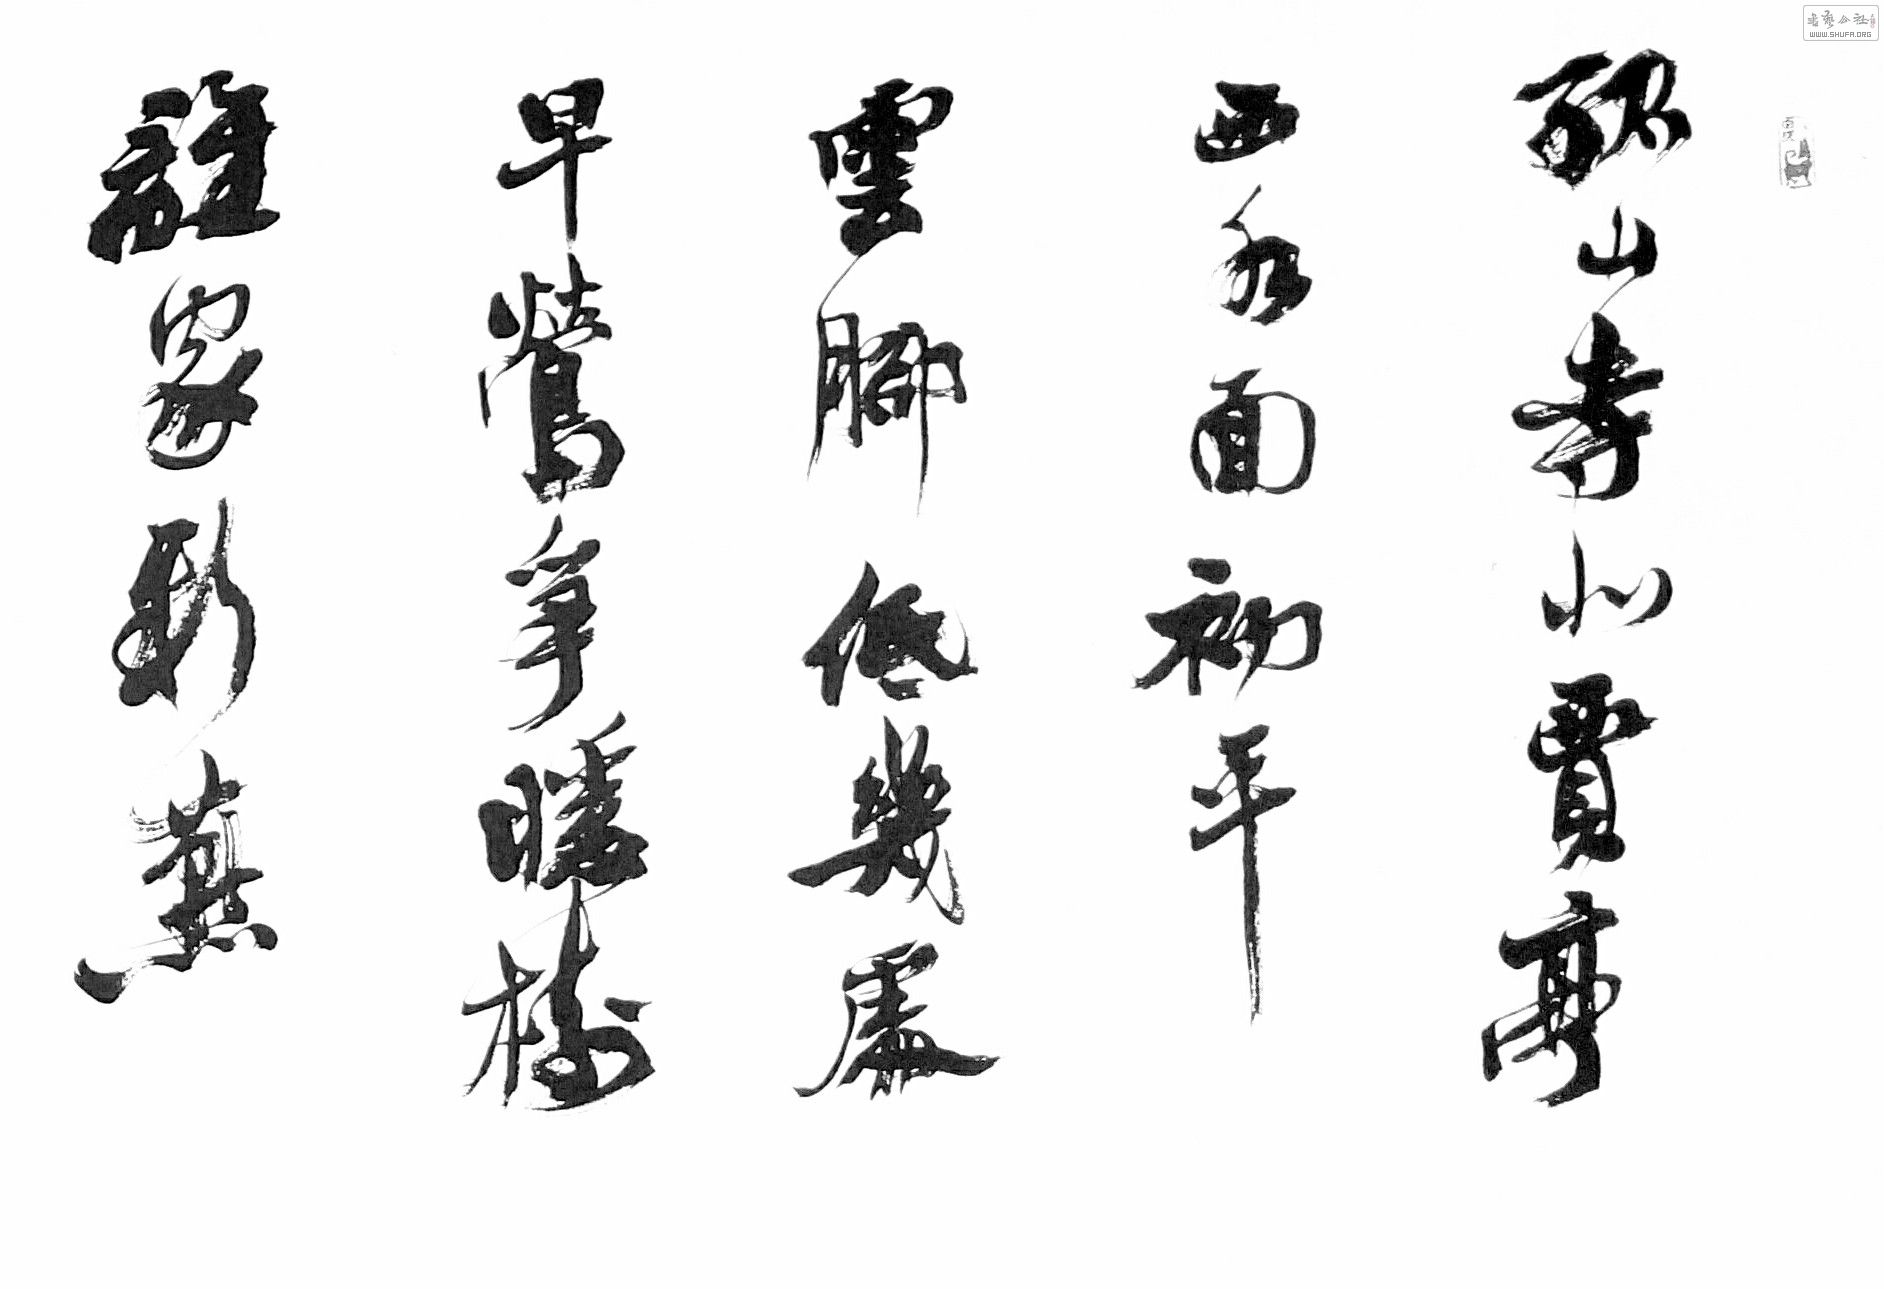 孤山寺北賈亭
西水面初平
雲腳低幾處
早鶯爭暖樹
誰家新燕
書藝公社
WWW.SHUFA.ORG